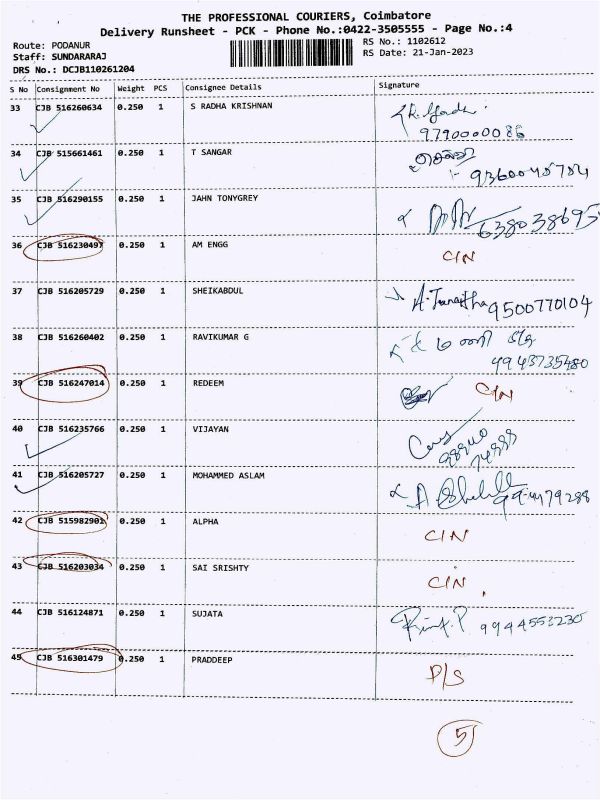 THE PROFESSIONAL COURIERS, Coimbatore
Delivery Runsheet - PCK - Phone No.:0422-3505555 - Page No.:4
Route: PODANUR
RS No.: 1102612
Staff: SUNDARARAJ
RS Date: 21-Jan-2023
DRS No.: DCJB110261204
S No Consignment No Weight PCS Consignee Details Signature
33 CJB 516260634 0.250 1 S RADHA KRISHNAN
9790000086
34 CJB 515661461 0.250 1 T SANGAR
9360045784
35 CJB 516290155 0.250 1 JAHN TONYGREY
638038695
36 CJB 516230497 0.250 1 AM ENGG C/N
37 CJB 516205729 0.250 1 SHEIKABDUL 9500770104
38 CJB 516260402 0.250 1 RAVIKUMAR G
9943735480
39 CJB 516247014 0.250 1 REDEEM C/N
40 CJB 516235766 0.250 1 VIJAYAN
41 CJB 516205727 0.250 1 MOHAMMED ASLAM
42 CJB 515982901 0.250 1 ALPHA C/N
43 CJB 516203034 0.250 1 SAI SRISHTY C/N
44 CJB 516124871 0.250 1 SUJATA 9944553230
45 CJB 516301479 0.250 1 PRADDEEP P/S
5